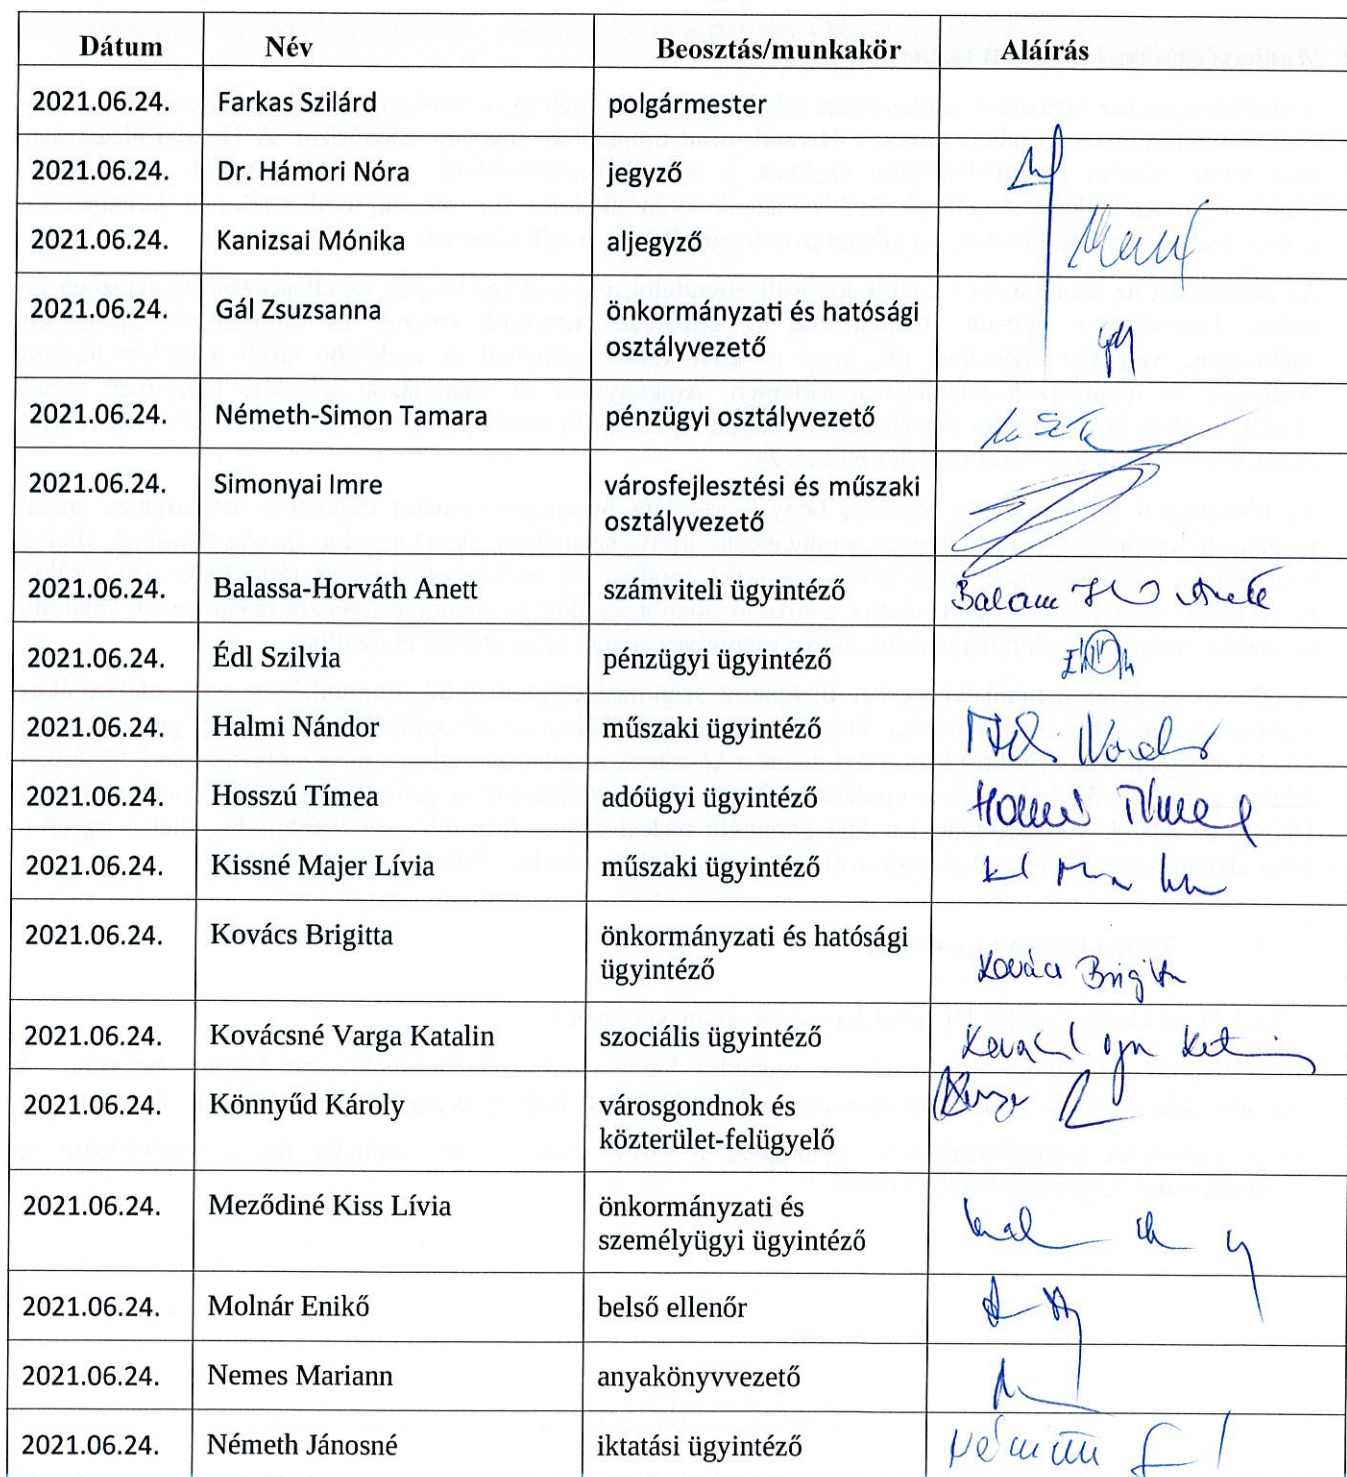 Dátum Név Beosztás/munkakör Aláírás
2021.06.24. Farkas Szilárd polgármester
2021.06.24. Dr. Hámori Nóra jegyző
2021.06.24. Kanizsai Mónika aljegyző
2021.06.24. Gál Zsuzsanna önkormányzati és hatósági
osztályvezető
2021.06.24. Németh-Simon Tamara pénzügyi osztályvezető
2021.06.24. Simonyai Imre városfejlesztési és műszaki
osztályvezető
2021.06.24. Balassa-Horváth Anett számviteli ügyintéző
2021.06.24. Édl Szilvia pénzügyi ügyintéző
2021.06.24. Halmi Nándor műszaki ügyintéző
2021.06.24. Hosszú Tímea adóügyi ügyintéző
2021.06.24. Kissné Majer Lívia műszaki ügyintéző
2021.06.24. Kovács Brigitta önkormányzati és hatósági
ügyintéző Kovács
2021.06.24. Kovácsné Varga Katalin szociális ügyintéző
2021.06.24. Könnyűd Károly városgondnok és
közterület-felügyelő
2021.06.24. Meződiné Kiss Lívia önkormányzati és
személyügyi ügyintéző
2021.06.24. Molnár Enikő belső ellenőr
2021.06.24. Nemes Mariann anyakönyvvezető
2021.06.24. Németh Jánosné iktatási ügyintéző